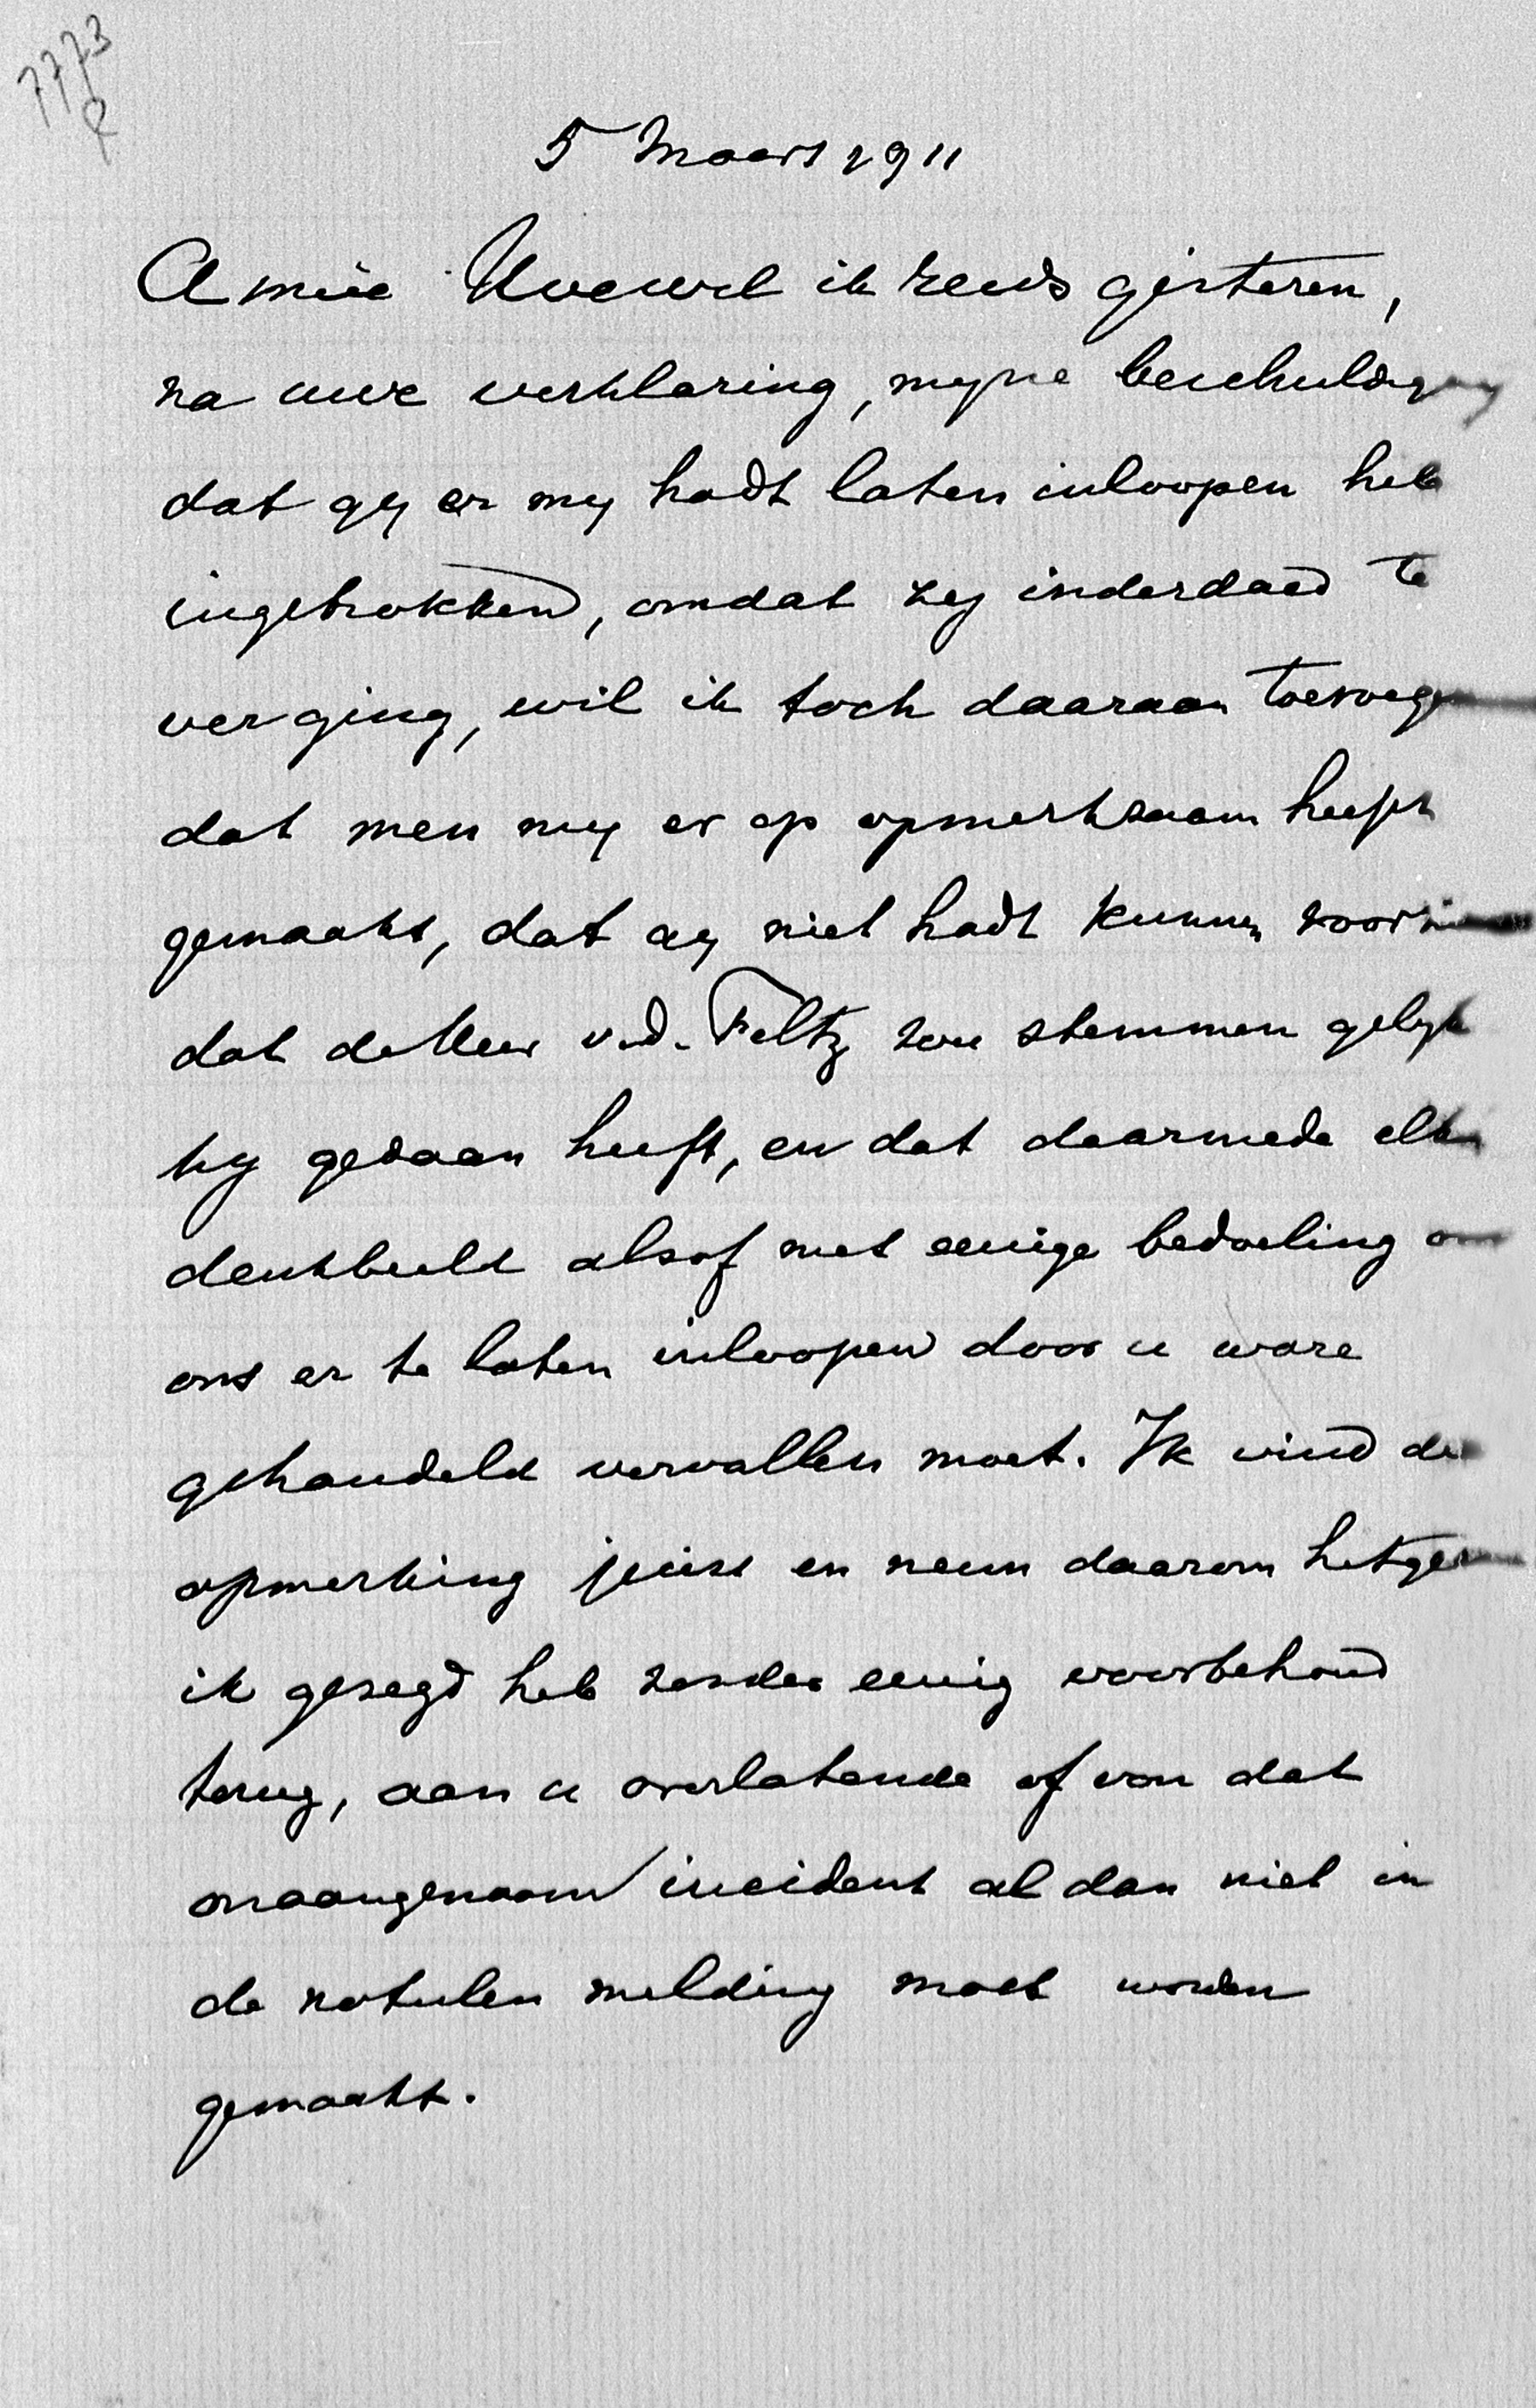 7773
5 Maart 1911
Amice Hoewel ik reeds gisteren,
na uwe verklaring, myne beschuldiging
dat gy er my hadt laten inloopen heb
ingetrokken, omdat zy inderdaad te
ver ging, wil ik toch daaraan toevoegen
dat men my er op opmerkzaam heeft
gemaakt, dat gy niet hadt kunnen voorzien
dat de Heer v.d. Feltz zou stemmen gelyk
hy gedaan heeft, en dat daarmede elk
denkbeeld alsof met eenige bedoeling om
ons er te laten inloopen door u ware
gehandeld vervallen moet. Ik vind die
opmerking juist en neem daarom hetgeen
ik gezegd heb zonder eenig voorbehoud
terug, aan u overlatende of van dat
onaangenaam incident al dan niet in
de notulen melding moet worden
gemaakt.